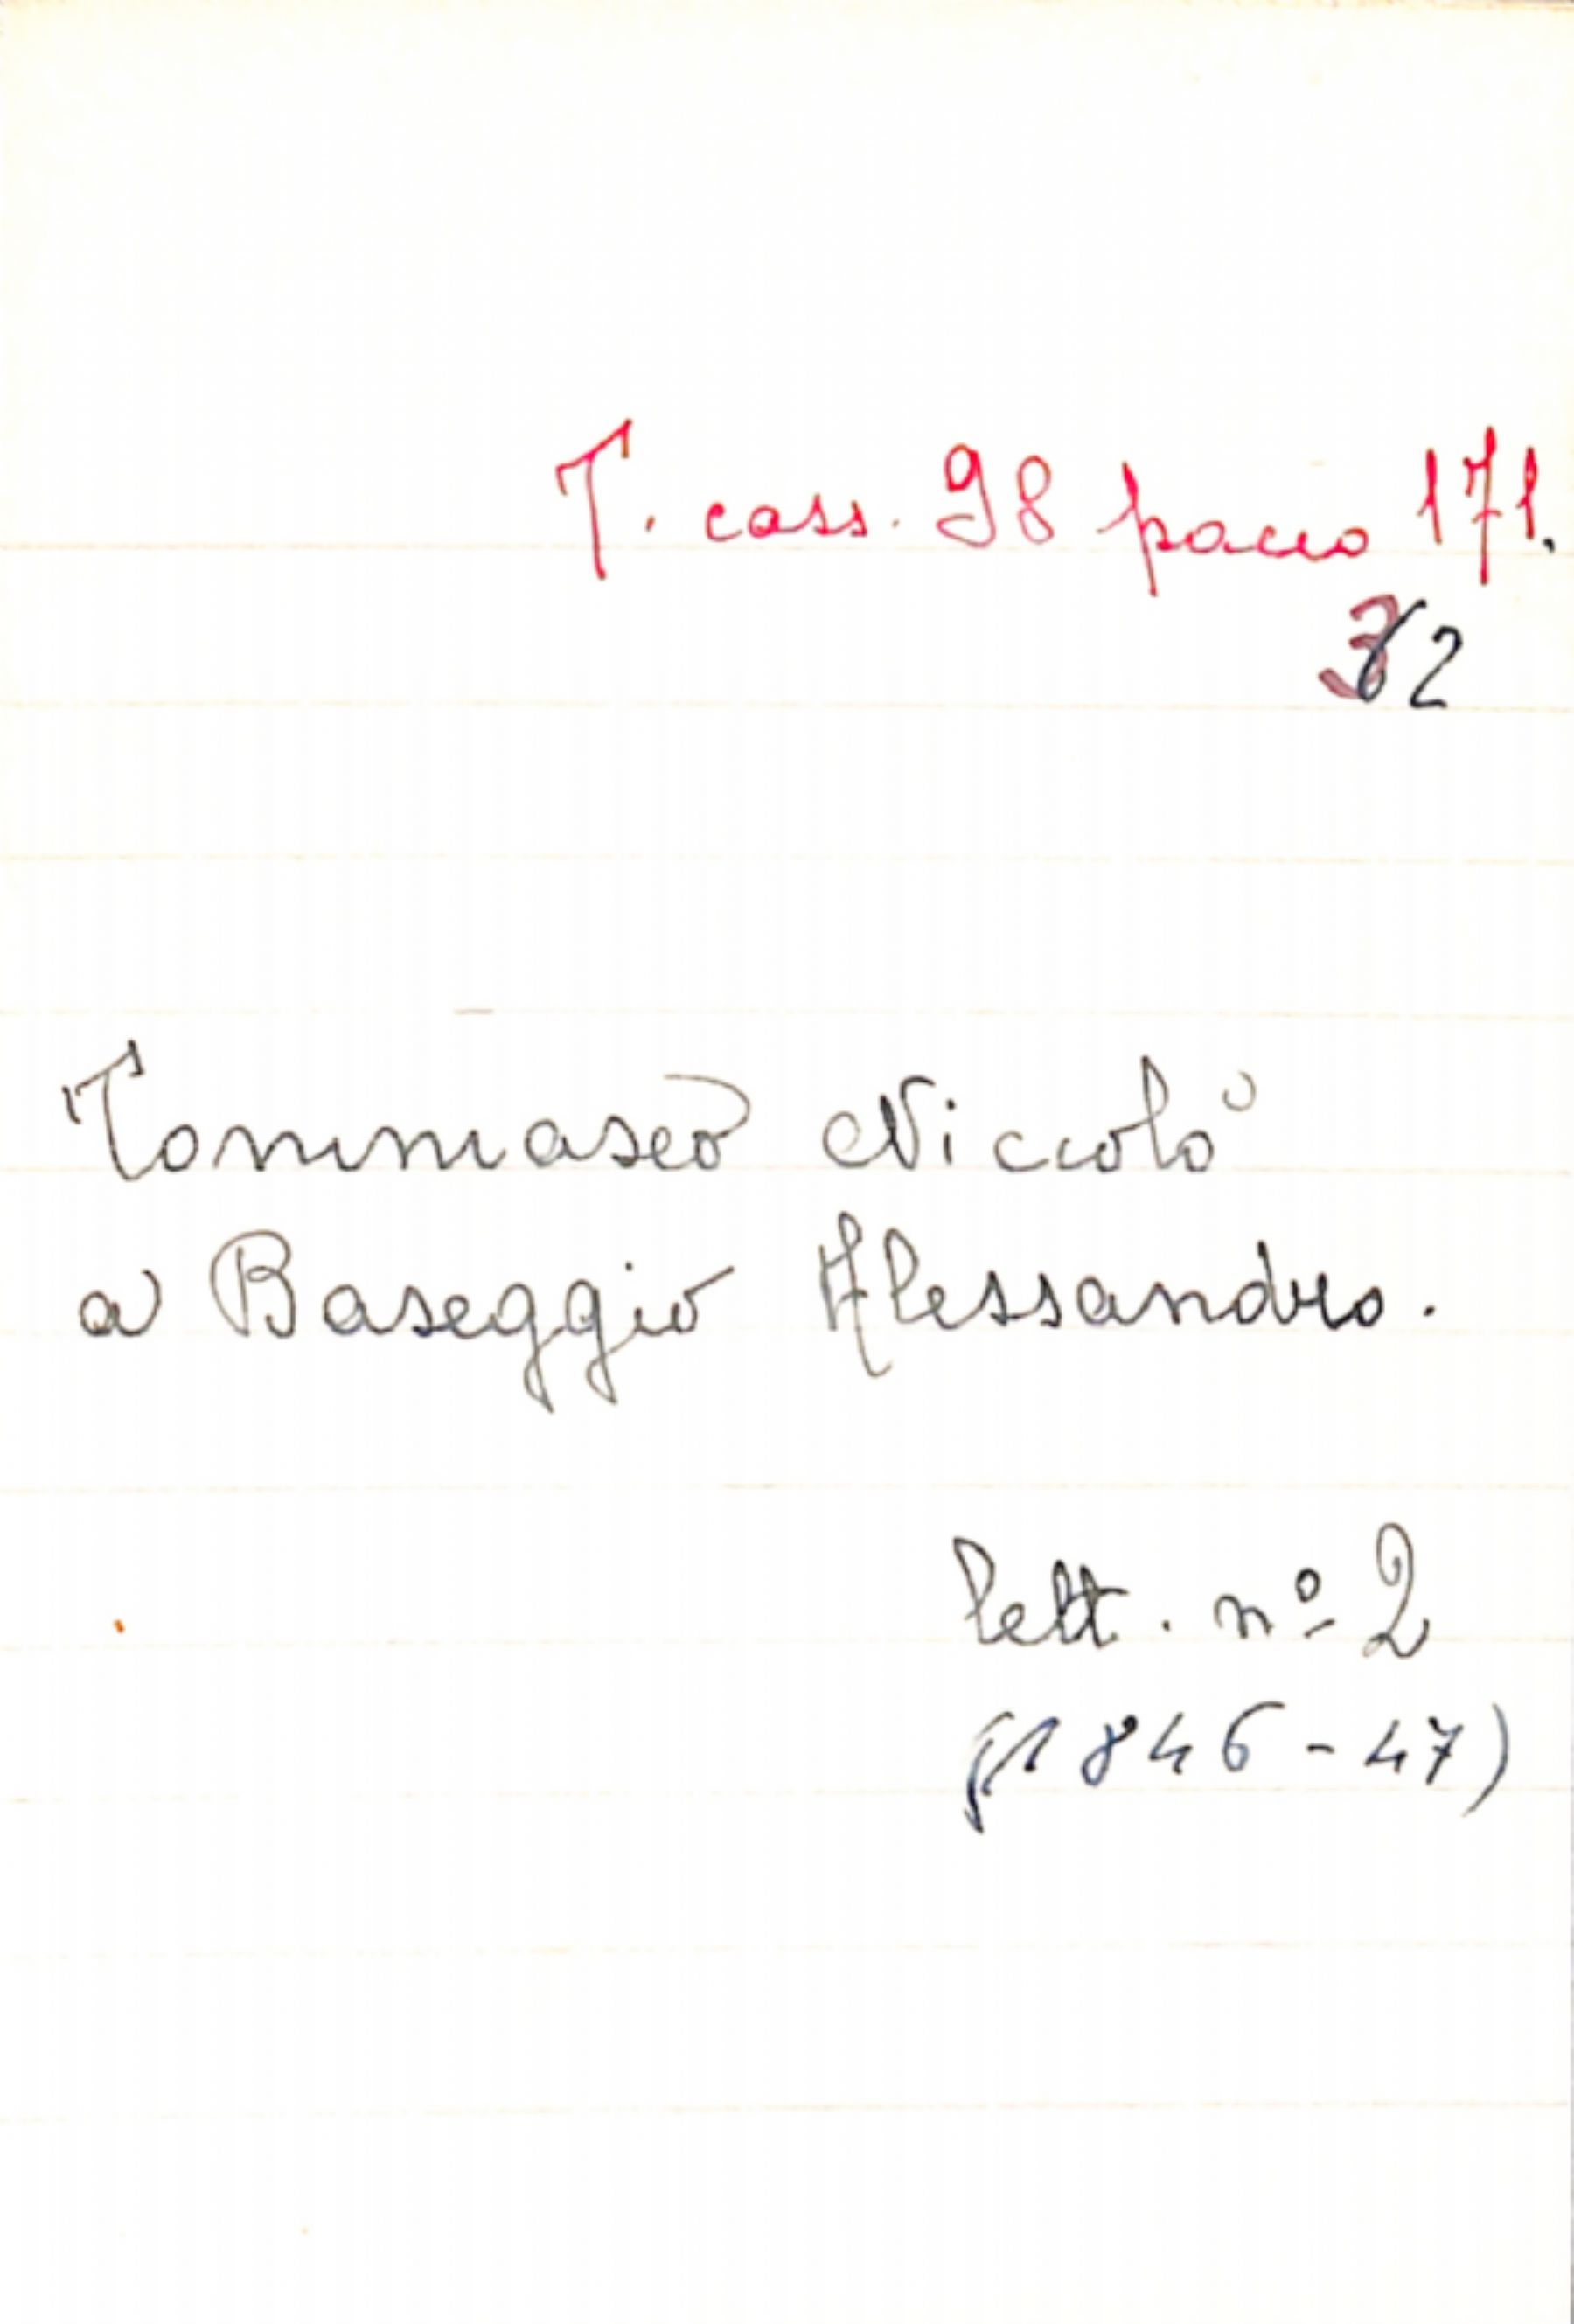 T. cass. 98 pacco 171.
2
Tommaseo Niccolò
a Baseggio Alessandro.
lett. nº 2
(1846-47)